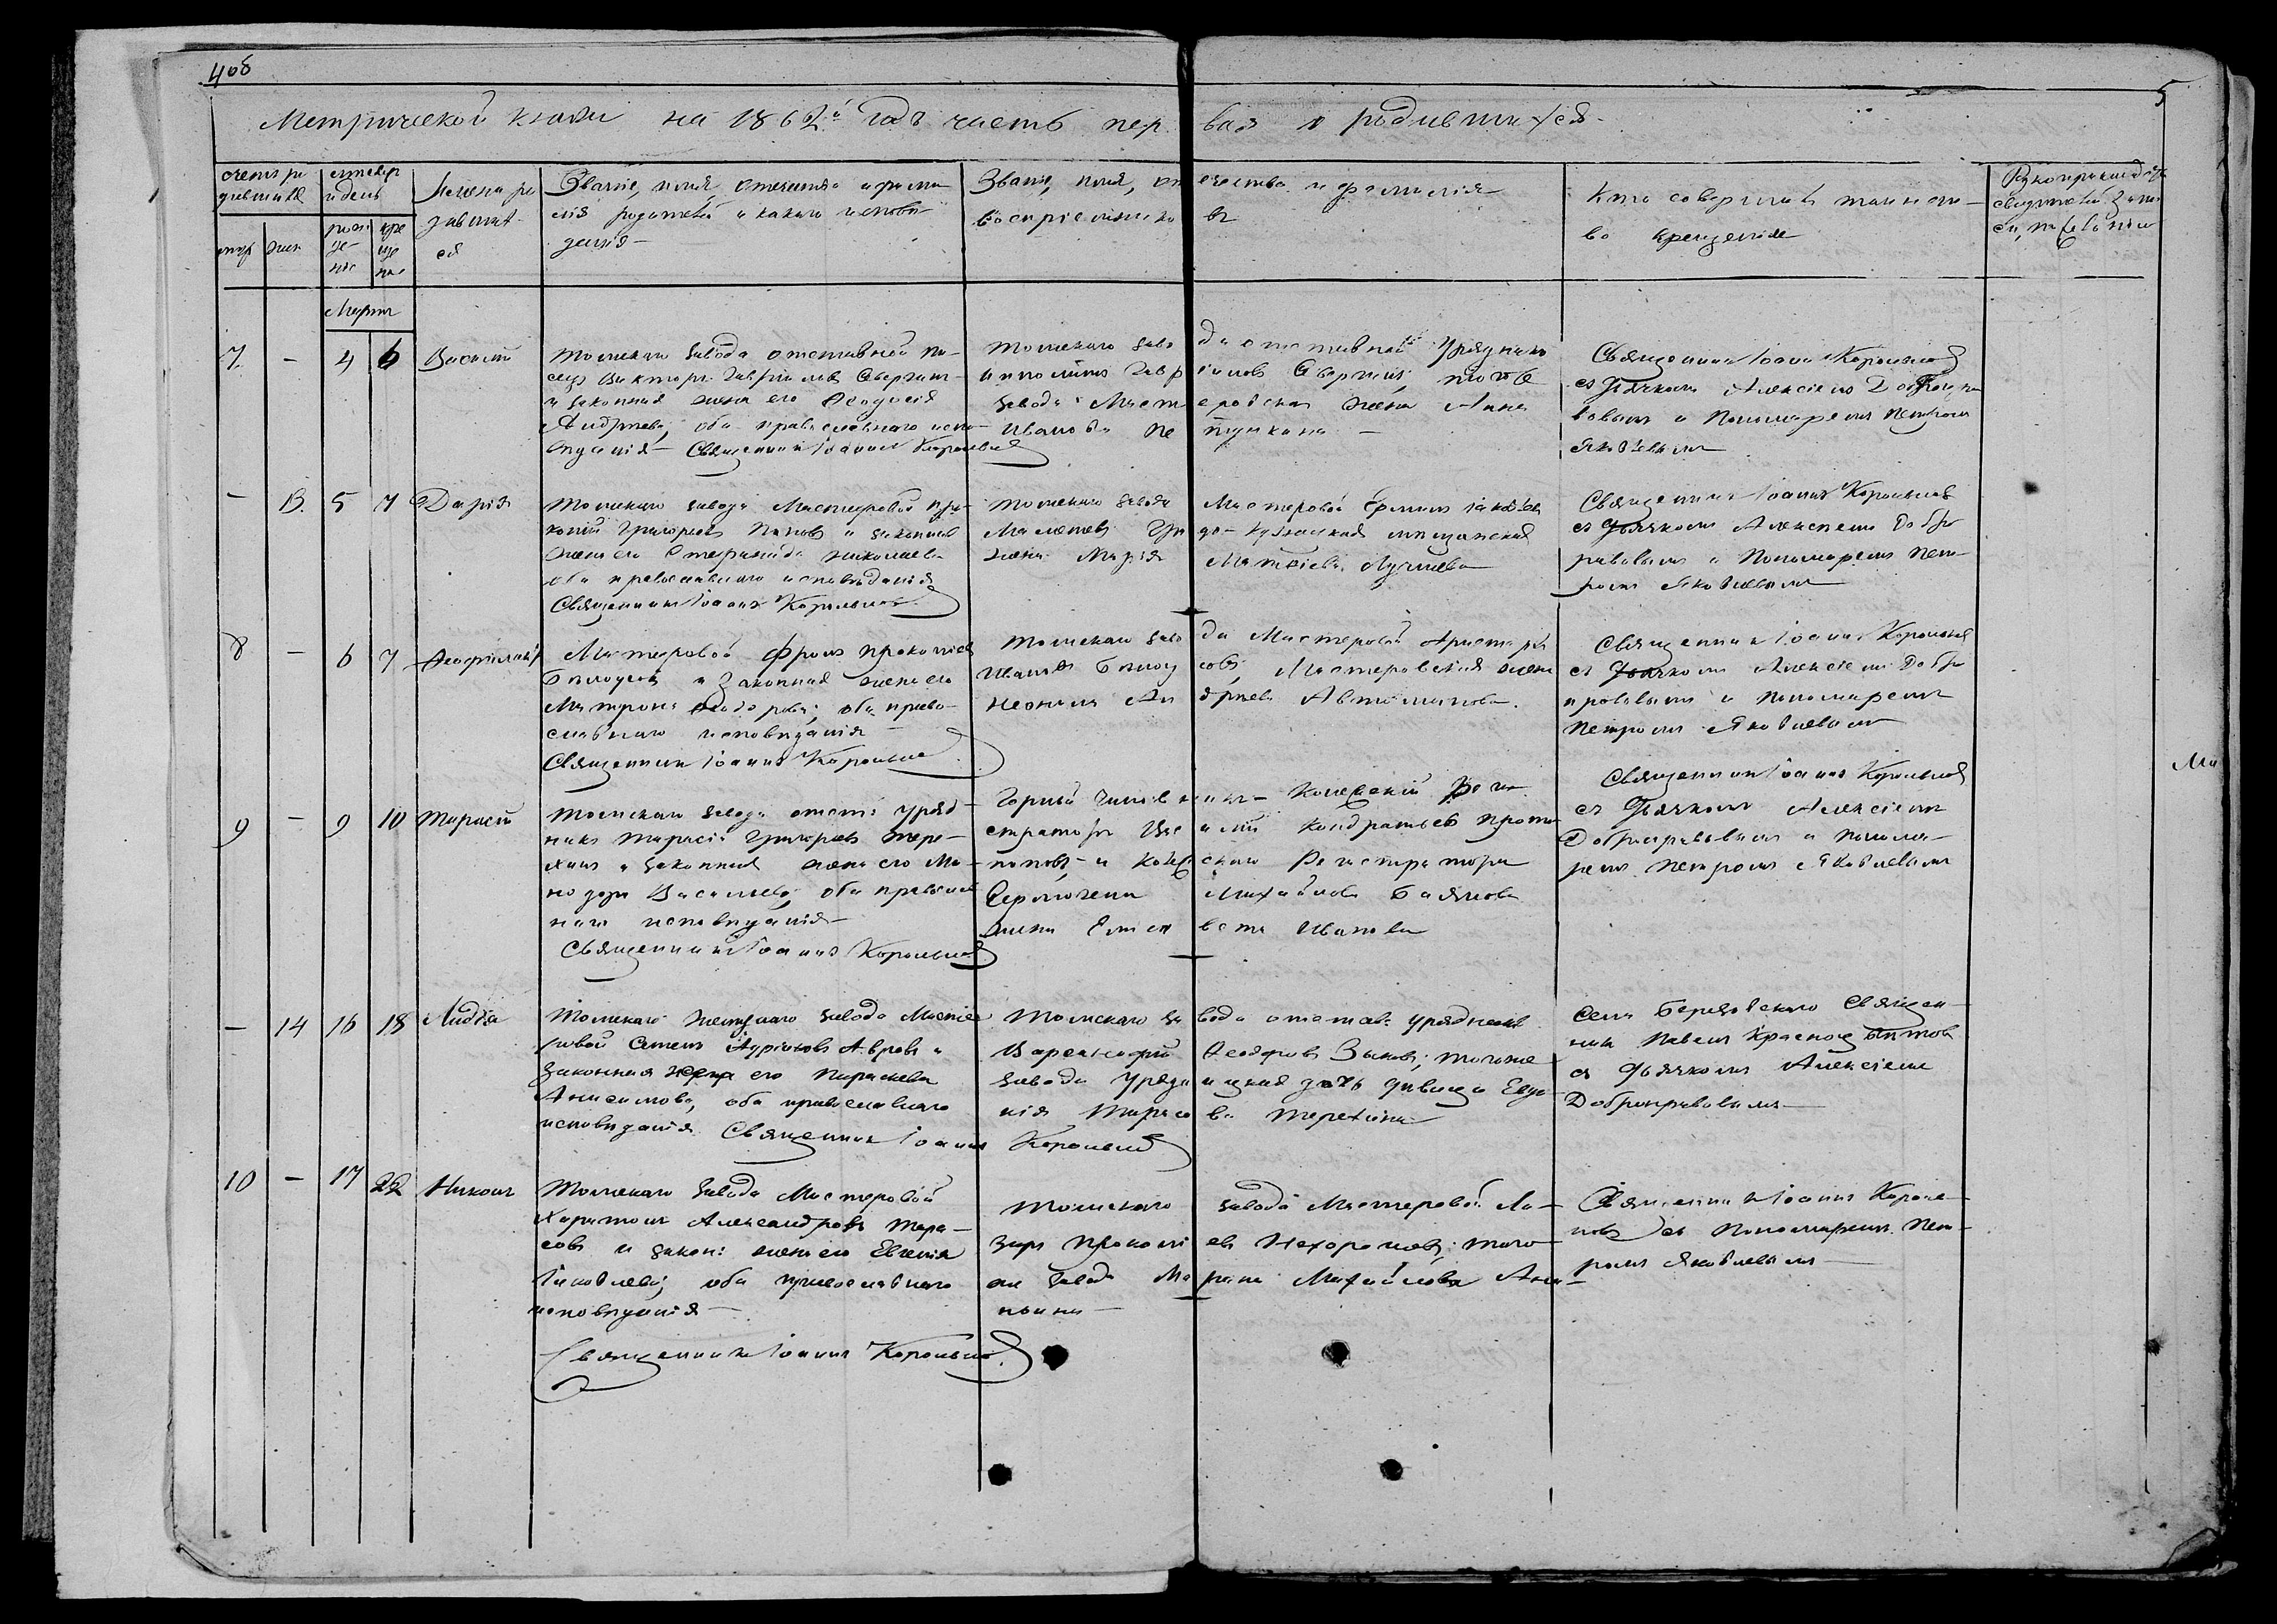 4об
5
Метрической книги на 1862й годъ часть пер вая о родившихся
счетъ ро
дившихся
муж жен
мѣсяцъ
и день
рож
де
нія
кре
ще
нія
Имена ро
дивших
ся
Званіе, имя, отчество и фами
лія родителей и какого исповѣ
данія
Званіе, имя, от чество и фамилія
воспріемнико въ
Кто совершалъ таинст
во крещенія
Рукоприкладство
свидѣтелей запи
си, по желанію
Мартъ
7 – 4 6 Василій
Томскаго завода отставной пи-
сецъ Викторъ Гавриловъ Аверкин
и законная жена его Ѳеодосія
Андреева, оба православнаго испо-
вѣданія – Священникъ Іоаннъ Корольковъ
Томскаго заво да отставной Урядникъ
Ипполитъ Гавр иловъ Аверкинъ; того же
завода Маст еровская жена Анна
Иванова Пе тунина –
Священникъ Іоаннъ Корольковъ
съ Дьячкомъ Алексіемъ Добропра
вовымъ и Пономаремъ Петромъ
Яковлевымъ
– 13. 5 7 Дарія
Томскаго завода Мастеровой Про-
копій Григорьевъ Поповъ и законная
жена его Стефанида Николаева
оба православнаго исповѣданія
Священникъ Іоаннъ Корольковъ
Томскаго завода Мастеровой Ермилъ Іаковлевъ
Мамонтовъ Гра до-Кузнецкая мещанская
жена Марія Матвѣева Лучшева
Священникъ Іоаннъ Корольковъ
съ Дьячкомъ Алексіемъ Добро
правовымъ и Пономаремъ Пет-
ромъ Яковлевымъ
8 – 6 7 Ѳеофилактъ
Мастеровой Фролъ Прокопіевъ
Бѣлоусовъ и законная жена его
Матрона Ѳеодорова; оба право-
славнаго исповѣданія
Священникъ Іоаннъ Корольковъ
Томскаго заво да Мастеровой Аристархъ
Ивановъ Бѣлоу совъ, Мастеровская жена
Неонила Ан дреева Автоманова.
Священникъ Іоаннъ Корольковъ
съ Дьячкомъ Алексіемъ Добро
правовымъ и Пономаремъ
Петромъ Яковлевымъ
9 – 9 10 Тарасій
Томскаго завода отста: уряд-
никъ Тарасій Григорьевъ Тере-
хинъ и законная жена его Ми-
нодора Васильева, оба православ
наго исповѣданія –
Священникъ Іоаннъ Корольковъ
Горный Чиновн икъ – Колежскій Реги-
страторъ Ва илій Кондратьевъ Прото-
поповъ, и Колеж скаго Регистратора
Михайлова Баянова
жена Елиса вета Иванова
Священникъ Іоаннъ Корольковъ
съ Дьячкомъ Алексіемъ
Доброправовымъ и Понома-
ремъ Петромъ Яковлевымъ
– 14 16 18 Лидія
Томскаго желѣзнаго завода Масте
ровой Семенъ Адріановъ Авровъ и
законная жена его Параскева
Анисимова, оба православнаго
исповѣданія. Священникъ Іоаннъ Корольковъ
Томскаго за вода отстав: урядникъ
Варѳоломей Ѳеодоровъ Зыковъ; того же
завода Уряд ницкая дочь дѣвица Евдо-
кія Тарасо ва Терехина
Села Березовскаго Священ-
никъ Павелъ Красно
съ Дьячкомъ Алексіемъ
Доброправовымъ –
10 – 17 22 Никонъ
Томскаго завода Мастеровой
Харитонъ Александровъ Тара-
совъ и закон: жена его Евгенія
Іаковлева; оба православнаго
исповѣданія –
Священникъ Іоаннъ Корольковъ.
Томскаго завода Мастеровой Ла-
зарь Прокопі евъ Нехорошевъ; того
же завода Ма рина Михайлова Ана-
ньина –
Священникъ Іоаннъ Король-
ковъ съ Пономаремъ Пет-
ромъ Яковлевымъ –
Ма